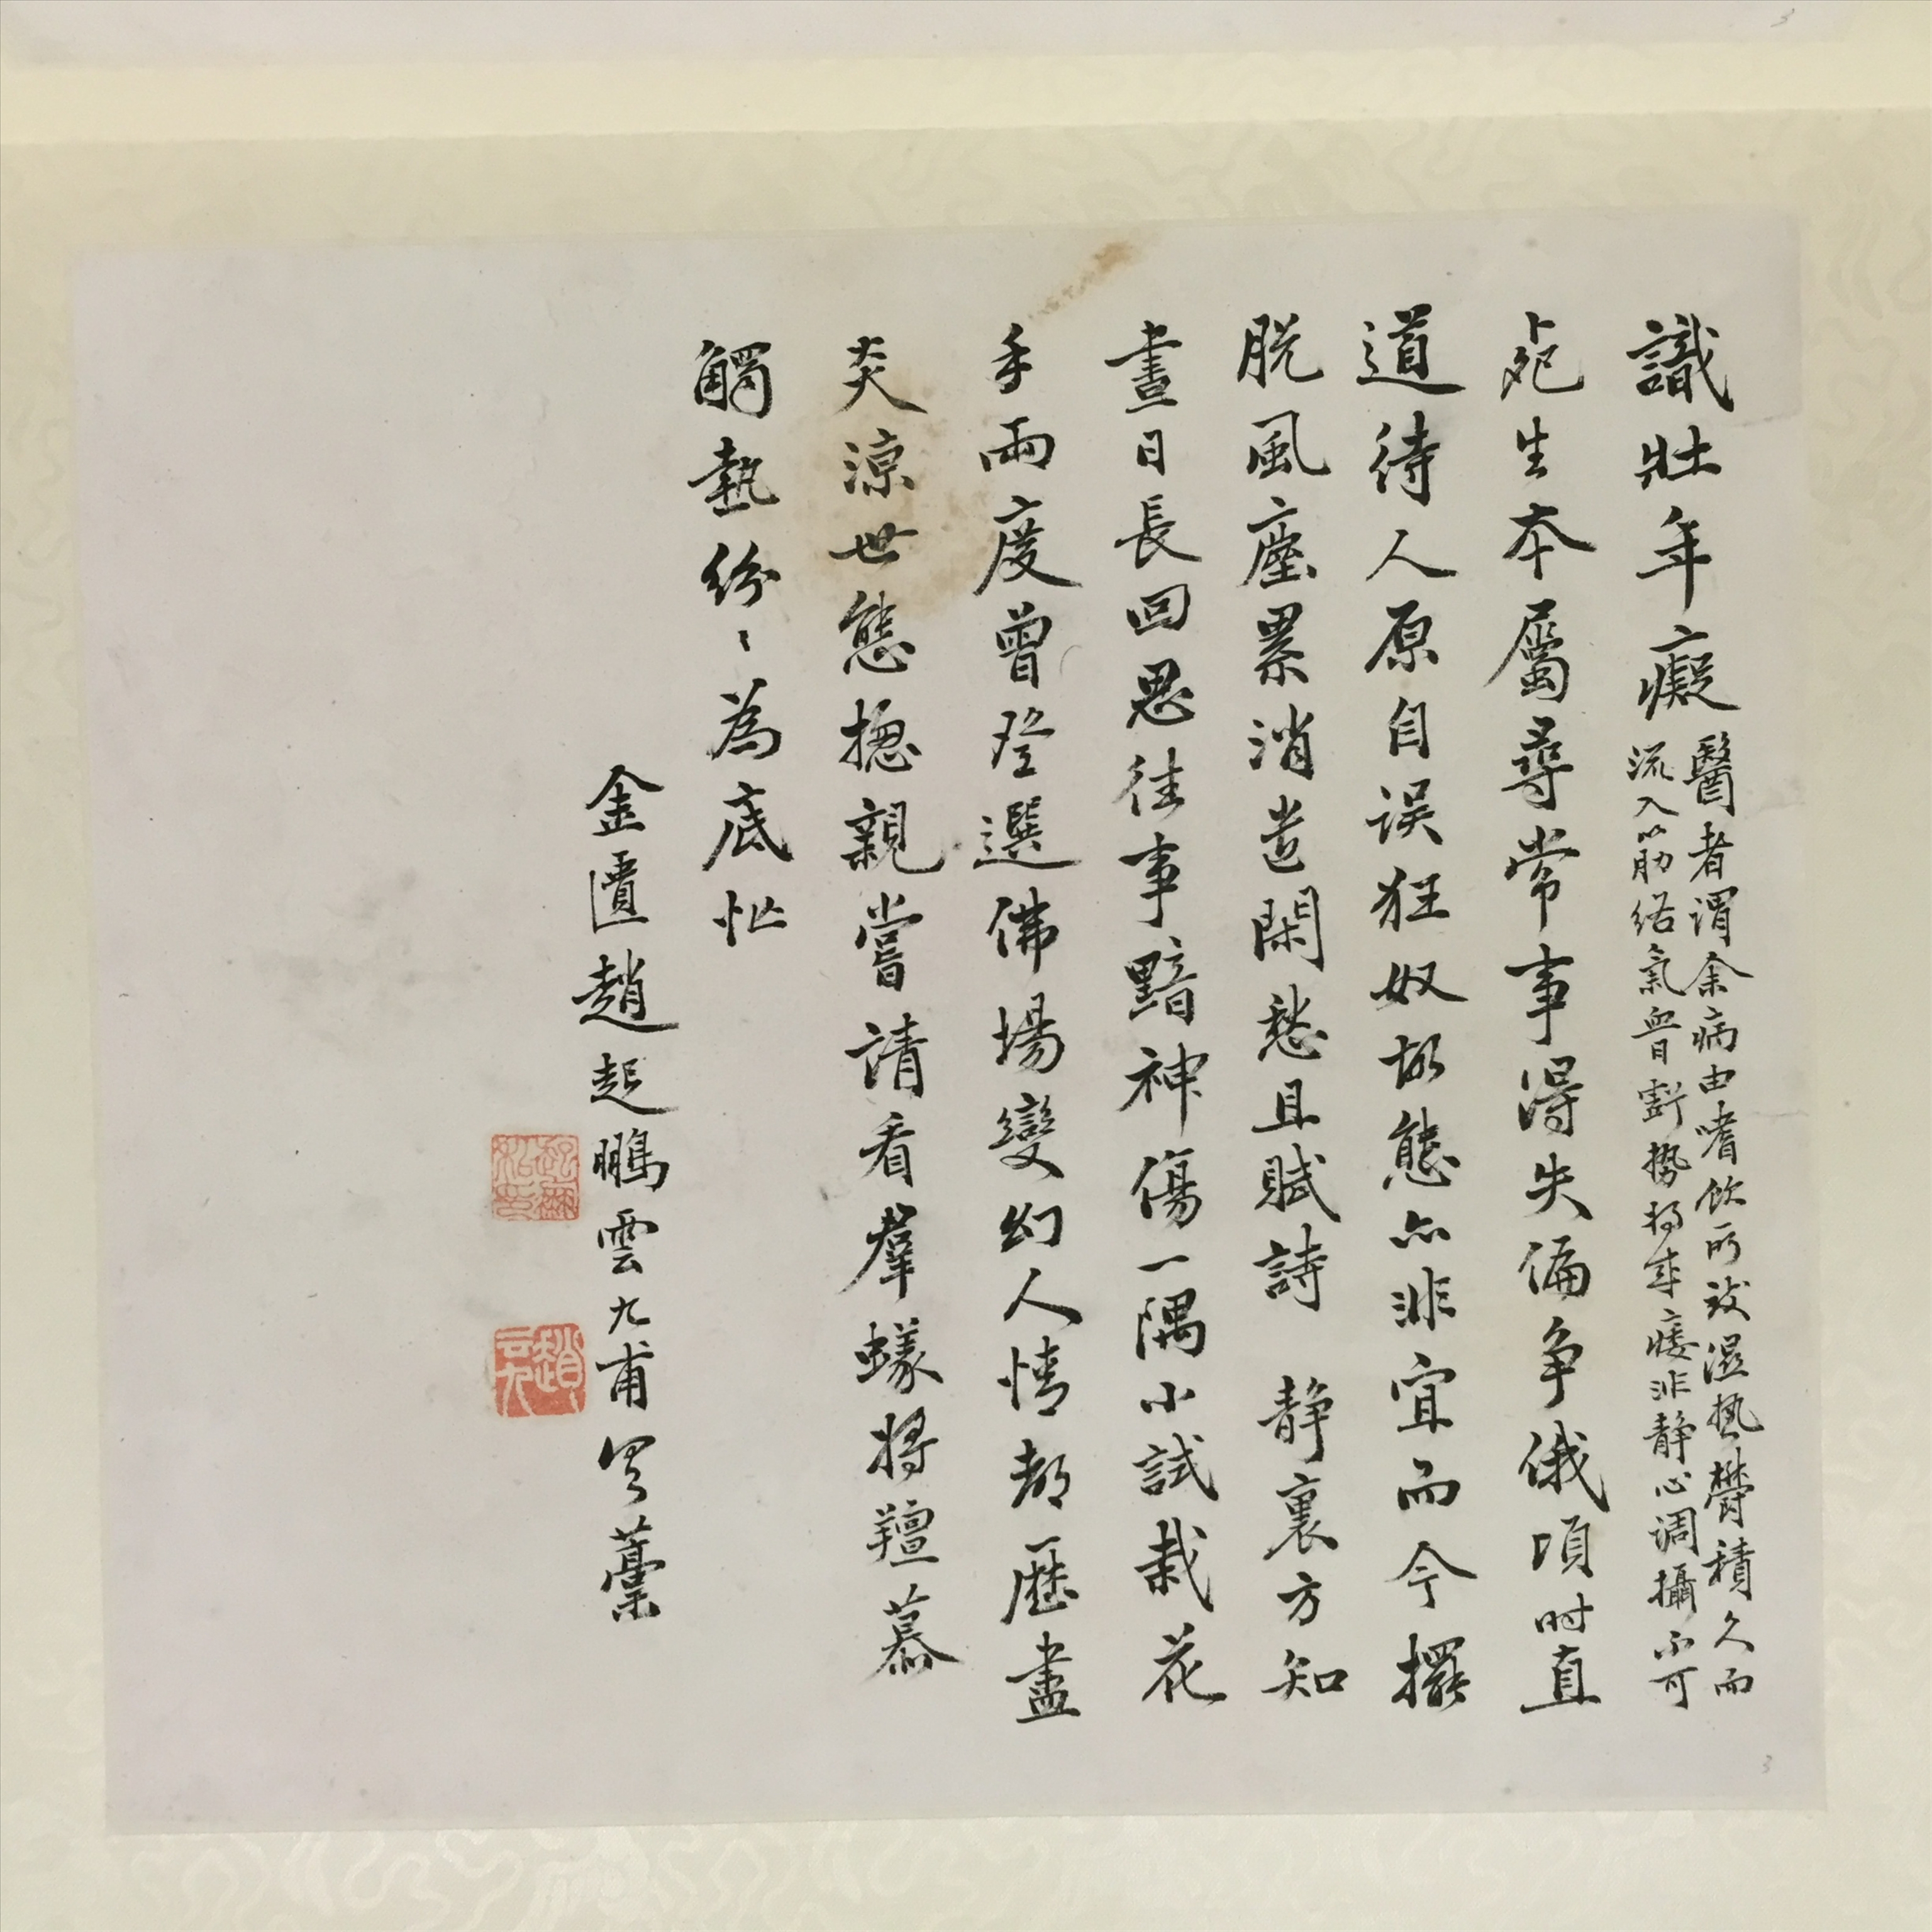 識壯年癡
醫者謂余病由嗜飲所致濕熱鬱積久而
流入筋絡氣血日虧勢将成痿非静心调攝不可
死生本屬尋常事得失偏争俄頃时直
道待人原自误狂奴故態亦非宜而今擺
脱風塵累消遣閑愁且賦詩 静裏方知
晝日長回思往事黯神傷一隅小試栽花
手兩度曾登選佛場變幻人情都歷盡
炎涼世態揔親嘗請看羣蟻将羶慕
觸熱紛〻為底忙
金匱趙起鵬雲九甫藁
趙